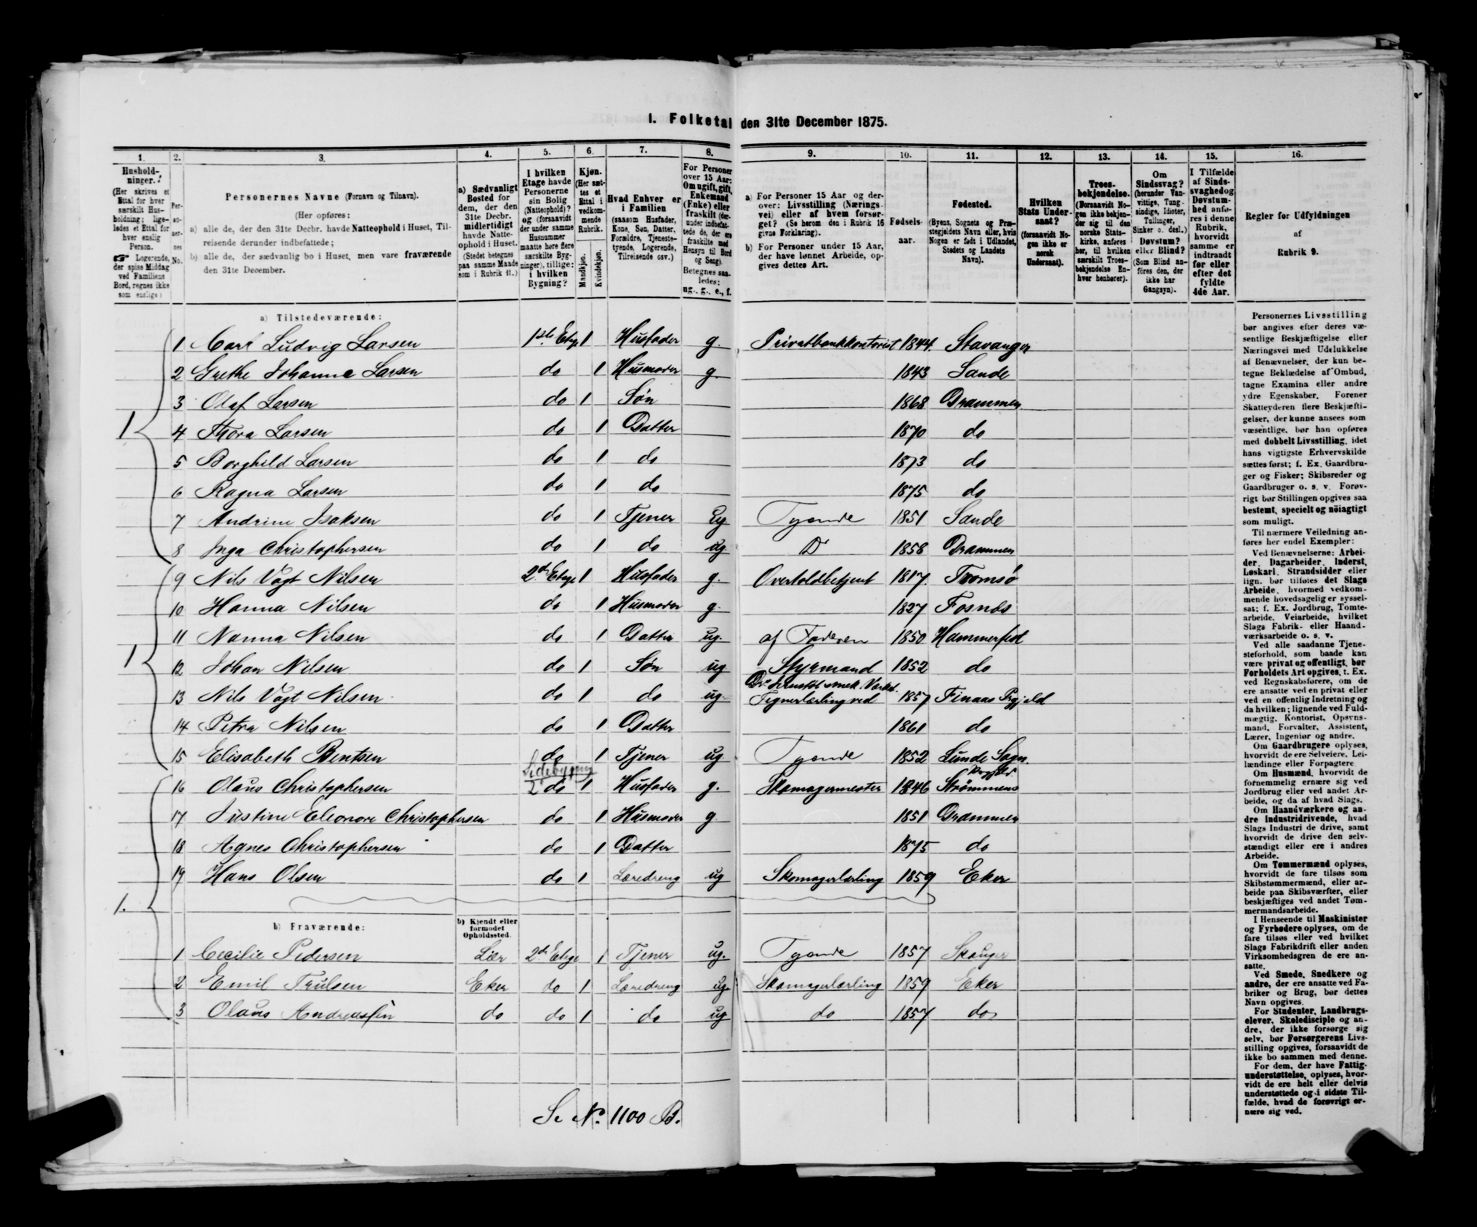 I. Folketal den 31te December 1875.
1. 2. 3. 4. 5. 6. 7. 8. 9. 10. 11. 12. 13. 14. 15. 16.
Hushold-
ninger.
(Her skrives et
Ettal for hver
særskilt Hus-
holdning; lige-
ledes et Ettal for
hver enslig
Person.
☛ Logerende,
der spise Middag
ved Familiens
Bord, regnes ikke
som enslige:
Personernes Navne (Fornavn og Tilnavn).
(Her opføres:
a) alle de, der den 31te Decbr. havde Natteophold i Huset, Til-
reisende derunder indbefattede;
b) alle de, der sædvanlig bo i Huset, men vare fraværende
den 31te December.
a) Sædvanligt
Bosted for
dem, der den
31te Decbr.
midlertidigt
havde Natte-
ophold i Huset.
(Stedet betegnes
paa samme Maade
som i Rubrik 11.)
I hvilken
Etage havde
Personerne
sin Bolig
(Natteophold)?
og (forsaavidt
der under samme
Husnummer
maatte høre flere
særskilte Byg-
ninger), tillige:
i hvilken
Bygning?
Kjøn.
(Her sæt-
tes et
Ettal i
vedkom-
mende
Rubrik.
Mandkjøn.
Kvindekjøn.
Hvad Enhver er
i Familien
(saasom Husfader,
Kone, Søn, Datter,
Forældre, Tjeneste-
tyende, Logerende,
Tilreisende osv.)
For Personer
over 15 Aar:
Om ugift, gift,
Enkemand
(Enke) eller
fraskilt
Betegnes saa-
ledes:
ug., g., e., f.
a) For Personer 15 Aar og der-
over: Livsstilling (Nærings-
vei) eller af hvem forsør-
get? (Se herom den i Rubrik 16
givne Forklaring).
b) For Personer under 15 Aar,
der have lønnet Arbeide, op-
gives dettes Art.
Fødsels-
aar.
Fødested.
(Byens, Sognets og Præ-
stegjeldets Navn eller, hvis
Nogen er født i Udlandet,
Stedets og Landets
Navn).
Hvilken
Stats Under-
saat?
(forsaavidt No-
gen ikke er
norsk
Undersaat).
Troes-
bekjendelse.
(Forsaavidt No-
gen ikke bekjen-
der sig til den
norske Stats-
kirke, anføres
her, til hvilken
særskilt Troes-
bekjendelse En-
hver henhører).
Om
Sindssvag?
(herunder Van-
vittige, Tung-
sindige, Idioter,
Tullinger,
Sinker o. desl.)
Døvstum?
eller Blind?
(Som Blind an-
føres den, der
ikke har
Gangsyn).
I Tilfælde
af Sinds-
svaghed og
Døvstum-
hed anfø-
res i denne
Rubrik,
hvorvidt
samme er
indtraadt
før eller
efter det
fyldte
4de Aar.
Regler for Udfyldningen
af
Rubrik 9.
a) Tilstedeværende:
1 1 Carl Ludvig Larsen 1ste Etg 1 Husfader g. Privatbankkontorist 1844. Stavanger
2 Grethe Johanna Larsen do 1 Husmoder g. 1843 Sande
3 Olaf Larsen do 1 Søn 1868 Drammen
4 Thora Larsen do 1 Datter 1870 do
5 Borghild Larsen do 1 do 1873 do
6 Ragna Larsen do 1 do 1875 do
7 Andrine Isaksen do 1 Tjener ug Tyende 1851 Sande
8 Inga Christophersen do 1 do ug Do 1858 Drammen
1 9 Nils Vogt Nilsen 2den Etage 1 Husfader g. Overtoldbetjent 1817. Tromsø
10 Hanna Nilsen do 1 Husmoder g. 1827 Fosnæs
11 Nanna Nilsen do 1 Datter ug. af Faderen 1850 Hammerfest
12 Johan Nilsen do 1 Søn ug Styrmand 1852 do
13 Nils Vogt Nilsen do 1 do ug Tegnerlærling ved 1857
14 Petra Nilsen do 1 Datter 1861 do
15 Elisabeth Berntsen do 1 Tjener ug Tyende 1852 Lunde Sogn
Sidebygng
1. 16 Olaus Christophersen 2 do 1 Husfader g. Skomagermester 1846 Strømmens
17 Justine Eleonore Christophersen do 1 Husmoder g 1851 Drammen
18 Agnes Christophersen do 1 Datter 1875 do
19 Hans Olsen do 1 Læredreng ug Skomagerlærling 1859 Eker
b) Fraværende:
b) Kjendt eller
formodet
Opholdssted.
1 Cecilie Pedersen Lier 2de Etage 1 Tjener ug. Tyende 1857 Skouger
2 Emil Trulsen Eker do 1 Læredreng ug Skomagerlærling 1859 Eker
3 Olaus Andreassen do do 1 do ug do 1857 do
Se No. 1100 B.
Personernes Livsstilling
bør angives efter deres væ-
sentlige Beskjæftigelse eller
Næringsvei med Udelukkelse
af Benævnelser, der kun be-
tegne Beklædelse af Ombud,
tagne Examina eller andre
ydre Egenskaber. Forener
Skatteyderen flere Beskjæfti-
gelser, der kunne ansees som
væsentlige, bør han opføres
med dobbelt Livsstilling, idet
hans vigtigste Erhvervskilde
sættes først; f. Ex. Gaardbru-
ger og Fisker; Skibsreder og
Gaardbruger o. s. v. Forøv-
rigt bør Stillingen opgives saa
bestemt, specielt og nøiagtigt
som muligt.
Til nærmere Veiledning an-
føres her endel Exempler:
Ved Benævnelserne: Arbei-
der, Dagarbeider, Inderst,
Løskarl, Strandsidder eller
lign. bør tilføies det Slags
Arbeide, hvormed vedkom-
mende hovedsagelig er syssel-
sat; f. Ex. Jordbrug, Tomte-
arbeide, Veiarbeide, hvilket
Slags Fabrik- eller Haand-
værksarbeide o. s. v.
Ved alle saadanne Tjene-
steforhold, som baade kan
være privat og offentligt, bør
Forholdets Art opgives, t. Ex.
ved Regnskabsførere, om de
ere ansatte ved en privat eller
ved en offentlig Indretning og
da hvilken; lignende ved Fuld-
mægtig, Kontorist, Opsyns-
mand, Forvalter, Assistent,
Lærer, Ingeniør og andre.
Om Gaardbrugere oplyses,
hvorvidt de ere Selveiere, Lei-
lændinge eller Forpagtere
Om Husmænd, hvorvidt de
fornemmelig ernære sig ved
Jordbrug eller ved andet Ar-
beide, og da af hvad Slags.
Om Haandværkere og an-
dre Industridrivende, hvad
Slags Industri de drive, samt
hvorvidt de drive den selv-
stændigt eller ere i andres
Arbeide.
Om Tømmermænd oplyses,
hvorvidt de fare tilsøs som
Skibstømmermænd, eller ar-
beide paa Skibsværfter, eller
beskjæftiges ved andet Tøm-
mermandsarbeide.
I Henseende til Maskinister
og Fyrbødere oplyses, om de
fare tilsøs eller ved hvilket
Slags Fabrikdrift eller anden
Virksomhedsgren de ere an-
satte.
Ved Smede, Snedkere og
andre, der ere ansatte ved Fa-
briker og Brug, bør dettes
Navn opgives.
For Studenter, Landbrugs-
elever, Skoledisciple og an-
dre, der ikke forsørge sig
selv, bør Forsørgerens Livs-
stilling opgives, forsaavidt de
ikke bo sammen med denne.
For dem, der have Fattig-
understøttelse, oplyses, hvor-
vidt de ere helt eller delvis
understøttede og i sidste Til-
fælde, hvad de forøvrigt er-
nære sig ved.